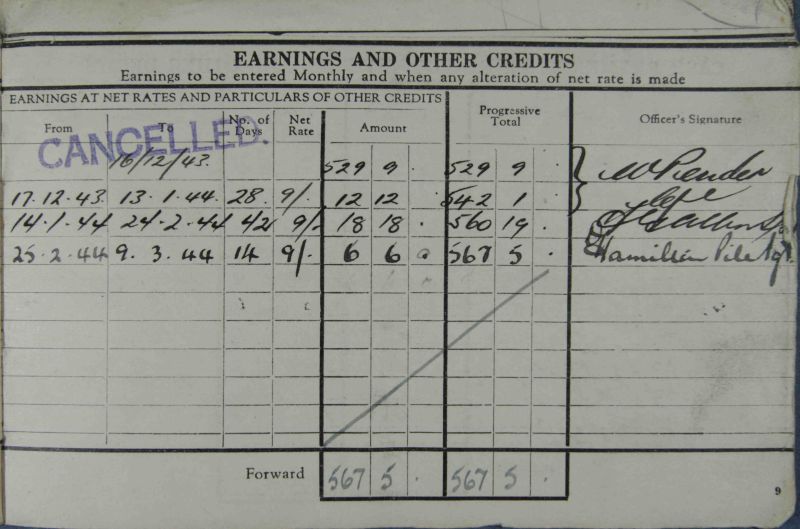 EARNINGS AND OTHER CREDITS
Earnings to be entered Monthly and when any alteration of net rate is made
EARNINGS AT NET RATES AND PARTICULARS OF OTHER CREDITS
From To No. of Days Net Rate Amount Progressive Total Officer's Signature
CANCELLED.
16/12/43. 529 9 . 529 9 .
17.12.43. 13.1.44. 28. 9/. 12 12 . 542 1 .
14.1.44 24.2.44 42 9/. 18 18 . 560 19 .
25.2.44 9.3.44 14 9/. 6 6 . 567 5 . Hamilton
Forward 567 5 . 567 5 .
9